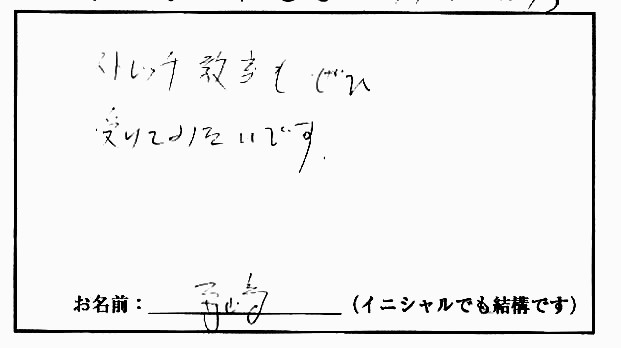 ストレッチ教室も ぜひ
受けてみたいです.
お名前： （イニシャルでも結構です）